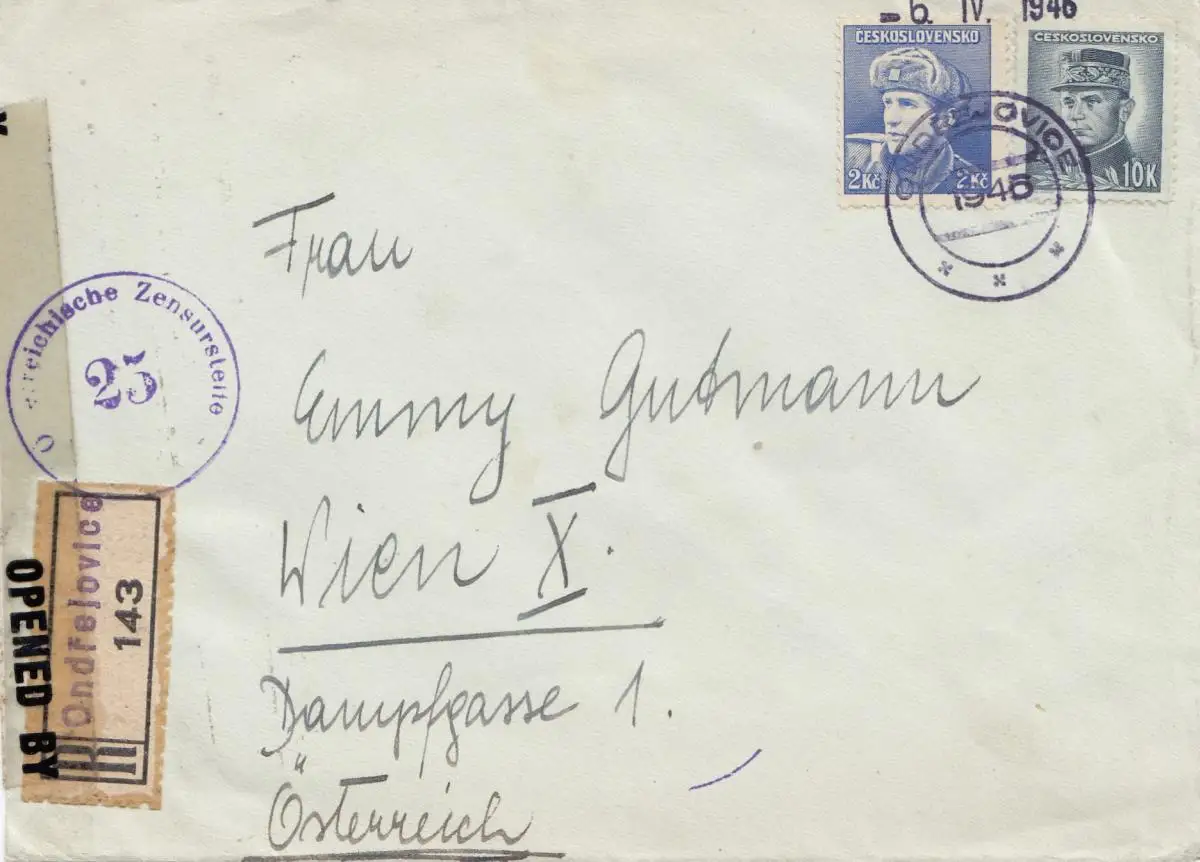 -6. IV. 1946
ČESKOSLOVENSKO
2Kč 2Kč
ČESKOSLOVENSKO
10K
1946
Frau
Emmy Gutmann
Wien X.
Dampfgasse 1.
Österreich
Zensurstelle
25
Ondřejovice
143
R
OPENED BY